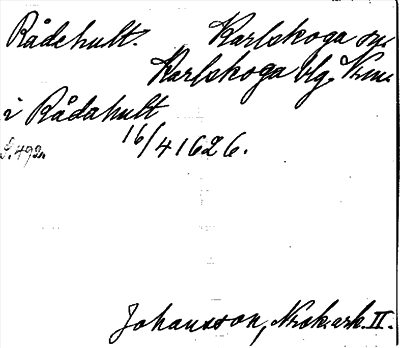 Rådehult. Karlskoga sn.
Karlskoga blg. Vrml.
i Rådahult
16/4 1626.
Johansson, Noraskog ark. II.